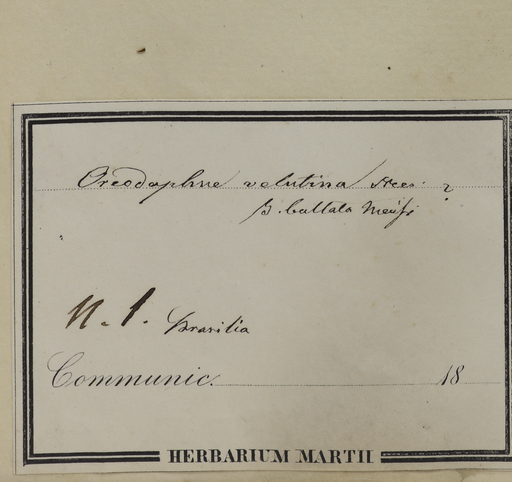 Oreodaphne velutina Nees. ?
β. bullata Meißn
N. 1. Brasilia
Communic. 18
HERBARIUM MARTII